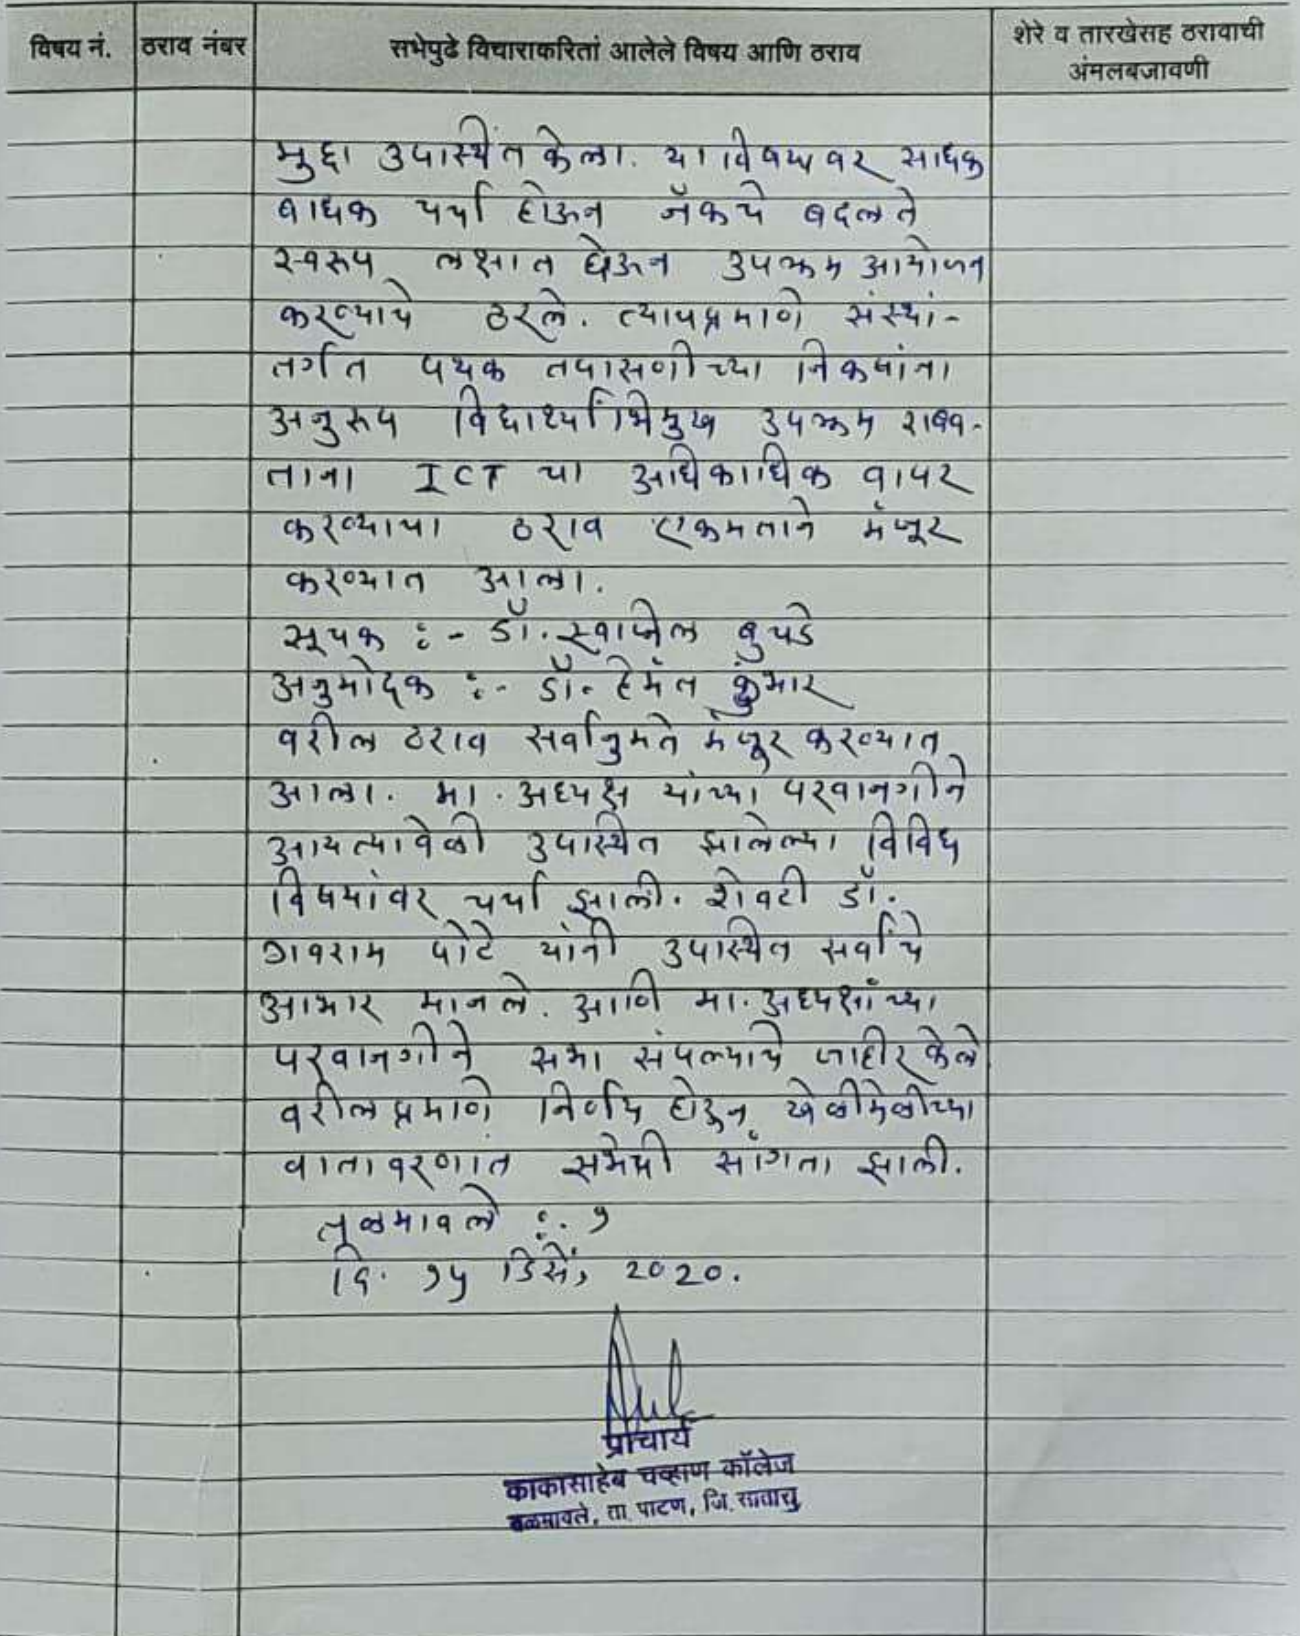 विषय नं. ठराव नंबर सभेपुढे विचाराकरितां आलेले विषय आणि ठराव शेरे व तारखेसह ठरावाची
अंमलबजावणी
मुद्दा उपास्थित केला. या विषयावर साधक
बाधक चर्चा होऊन नॅकचे बदलते
स्वरूप लक्षात घेऊन उपक्रम आयोजन
करण्याचे ठरले. त्याचप्रमाणे संस्थां-
तर्गत पथक तपासणीच्या निकषांना
अनुरूप विद्यार्थ्याभिमुख उपक्रम राबव-
ताना ICT चा अधिकाधिक वापर
करण्याचा ठराव एकमताने मंजूर
करण्यात आला.
सूचक :- डॉ. स्वप्निल बुचडे
अनुमोदक :- डॉ. हेमंत कुमार
वरील ठराव सर्वानुमते मंजूर करण्यात
आला. मा. अध्यक्ष यांच्या परवानगीने
आयत्यावेळी उपास्थित झालेल्या विविध
विषयांवर चर्चा झाली. शेवटी डॉ.
गवराम पोटे यांनी उपास्थित सर्वांचे
आभार मानले. आणि मा. अध्यक्षांच्या
परवानगीने सभा संपल्याचे जाहीर केले
वरीलप्रमाणे निर्णय होऊन खेळीमेळीच्या
वातावरणांत सभेची सांगता झाली.
तळमावले :. १
दि. १५ डिसें, 2020.
प्राचार्य
काकासाहेब चव्हाण कॉलेज
तळमावले, ता. पाटण, जि. सातारा